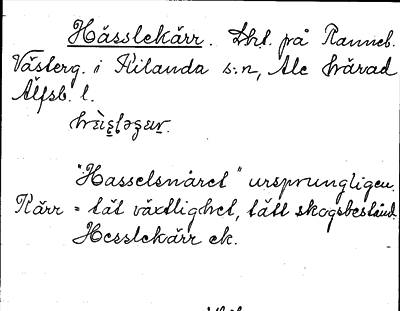 Hässlekärr. Lht. på Ranneb.
Västerg. i Kilanda s:n, Ale härad
Älfsb. l.
"Hasselsnåret" ursprungligen.
Kärr = tät växtlighet, tätt skogsbestånd.
Hesslekärr ek.